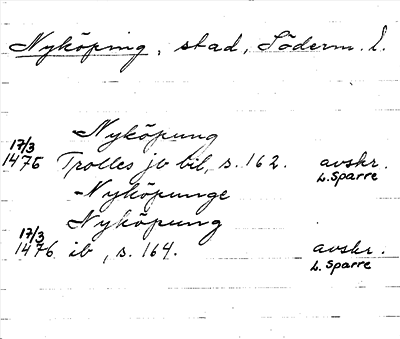 Nyköping, stad, Söderm. l.
Nyköpung
17/3
1476 Trolles jb bil, s. 162. avskr.
L. Sparre
-Nyköpunge
Nyköpung
17/3
1476 ib, s. 164. avskr.
L. Sparre